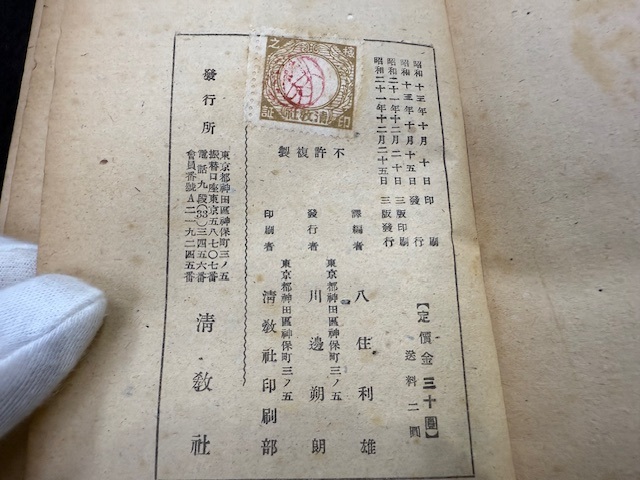 昭和十三年十月十日印刷
昭和十三年十月十五日發行
昭和二十一年十二月二十日三版印刷
昭和二十一年十二月二十五日三版發行
【定價金三十圓】
送料二圓
不許複製
譯編者 八住利雄
東京都神田區神保町三ノ五
發行者 川邊朔朗
東京都神田區神保町三ノ五
印刷者 清教社印刷部
發行所 清教社
東京都神田區神保町三ノ五
振替口座東京五八七〇七番
電話九段(33)三四五六番
會員番號A二一九二四五番
之
清教社
印
証